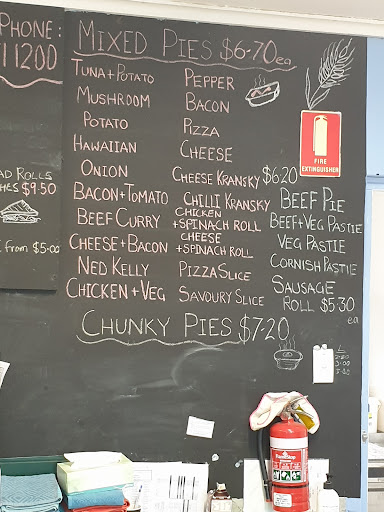 PHONE:
11200
AD ROLLS
HES $9.50
from $5.00
MIXED PIES $6-70 ea
TUNA+POTATO
MUSHROOM
POTATO
HAWAIIAN
ONION
BACON+TOMATO
BEEF CURRY
CHEESE+BACON
NED KELLY
CHICKEN+VEG
PEPPER
BACON
PIZZA
CHEESE
CHEESE KRANSKY $6.20
CHILLI KRANSKY
CHICKEN
+SPINACH ROLL
CHEESE
+SPINACH ROLL
PIZZA SLICE
SAVOURY SLICE
BEEF PIE
BEEF+VEG PASTIE
VEG PASTIE
CORNISH PASTIE
SAUSAGE
ROLL $5.30
ea
CHUNKY PIES $7-20
FIRE
EXTINGUISHER